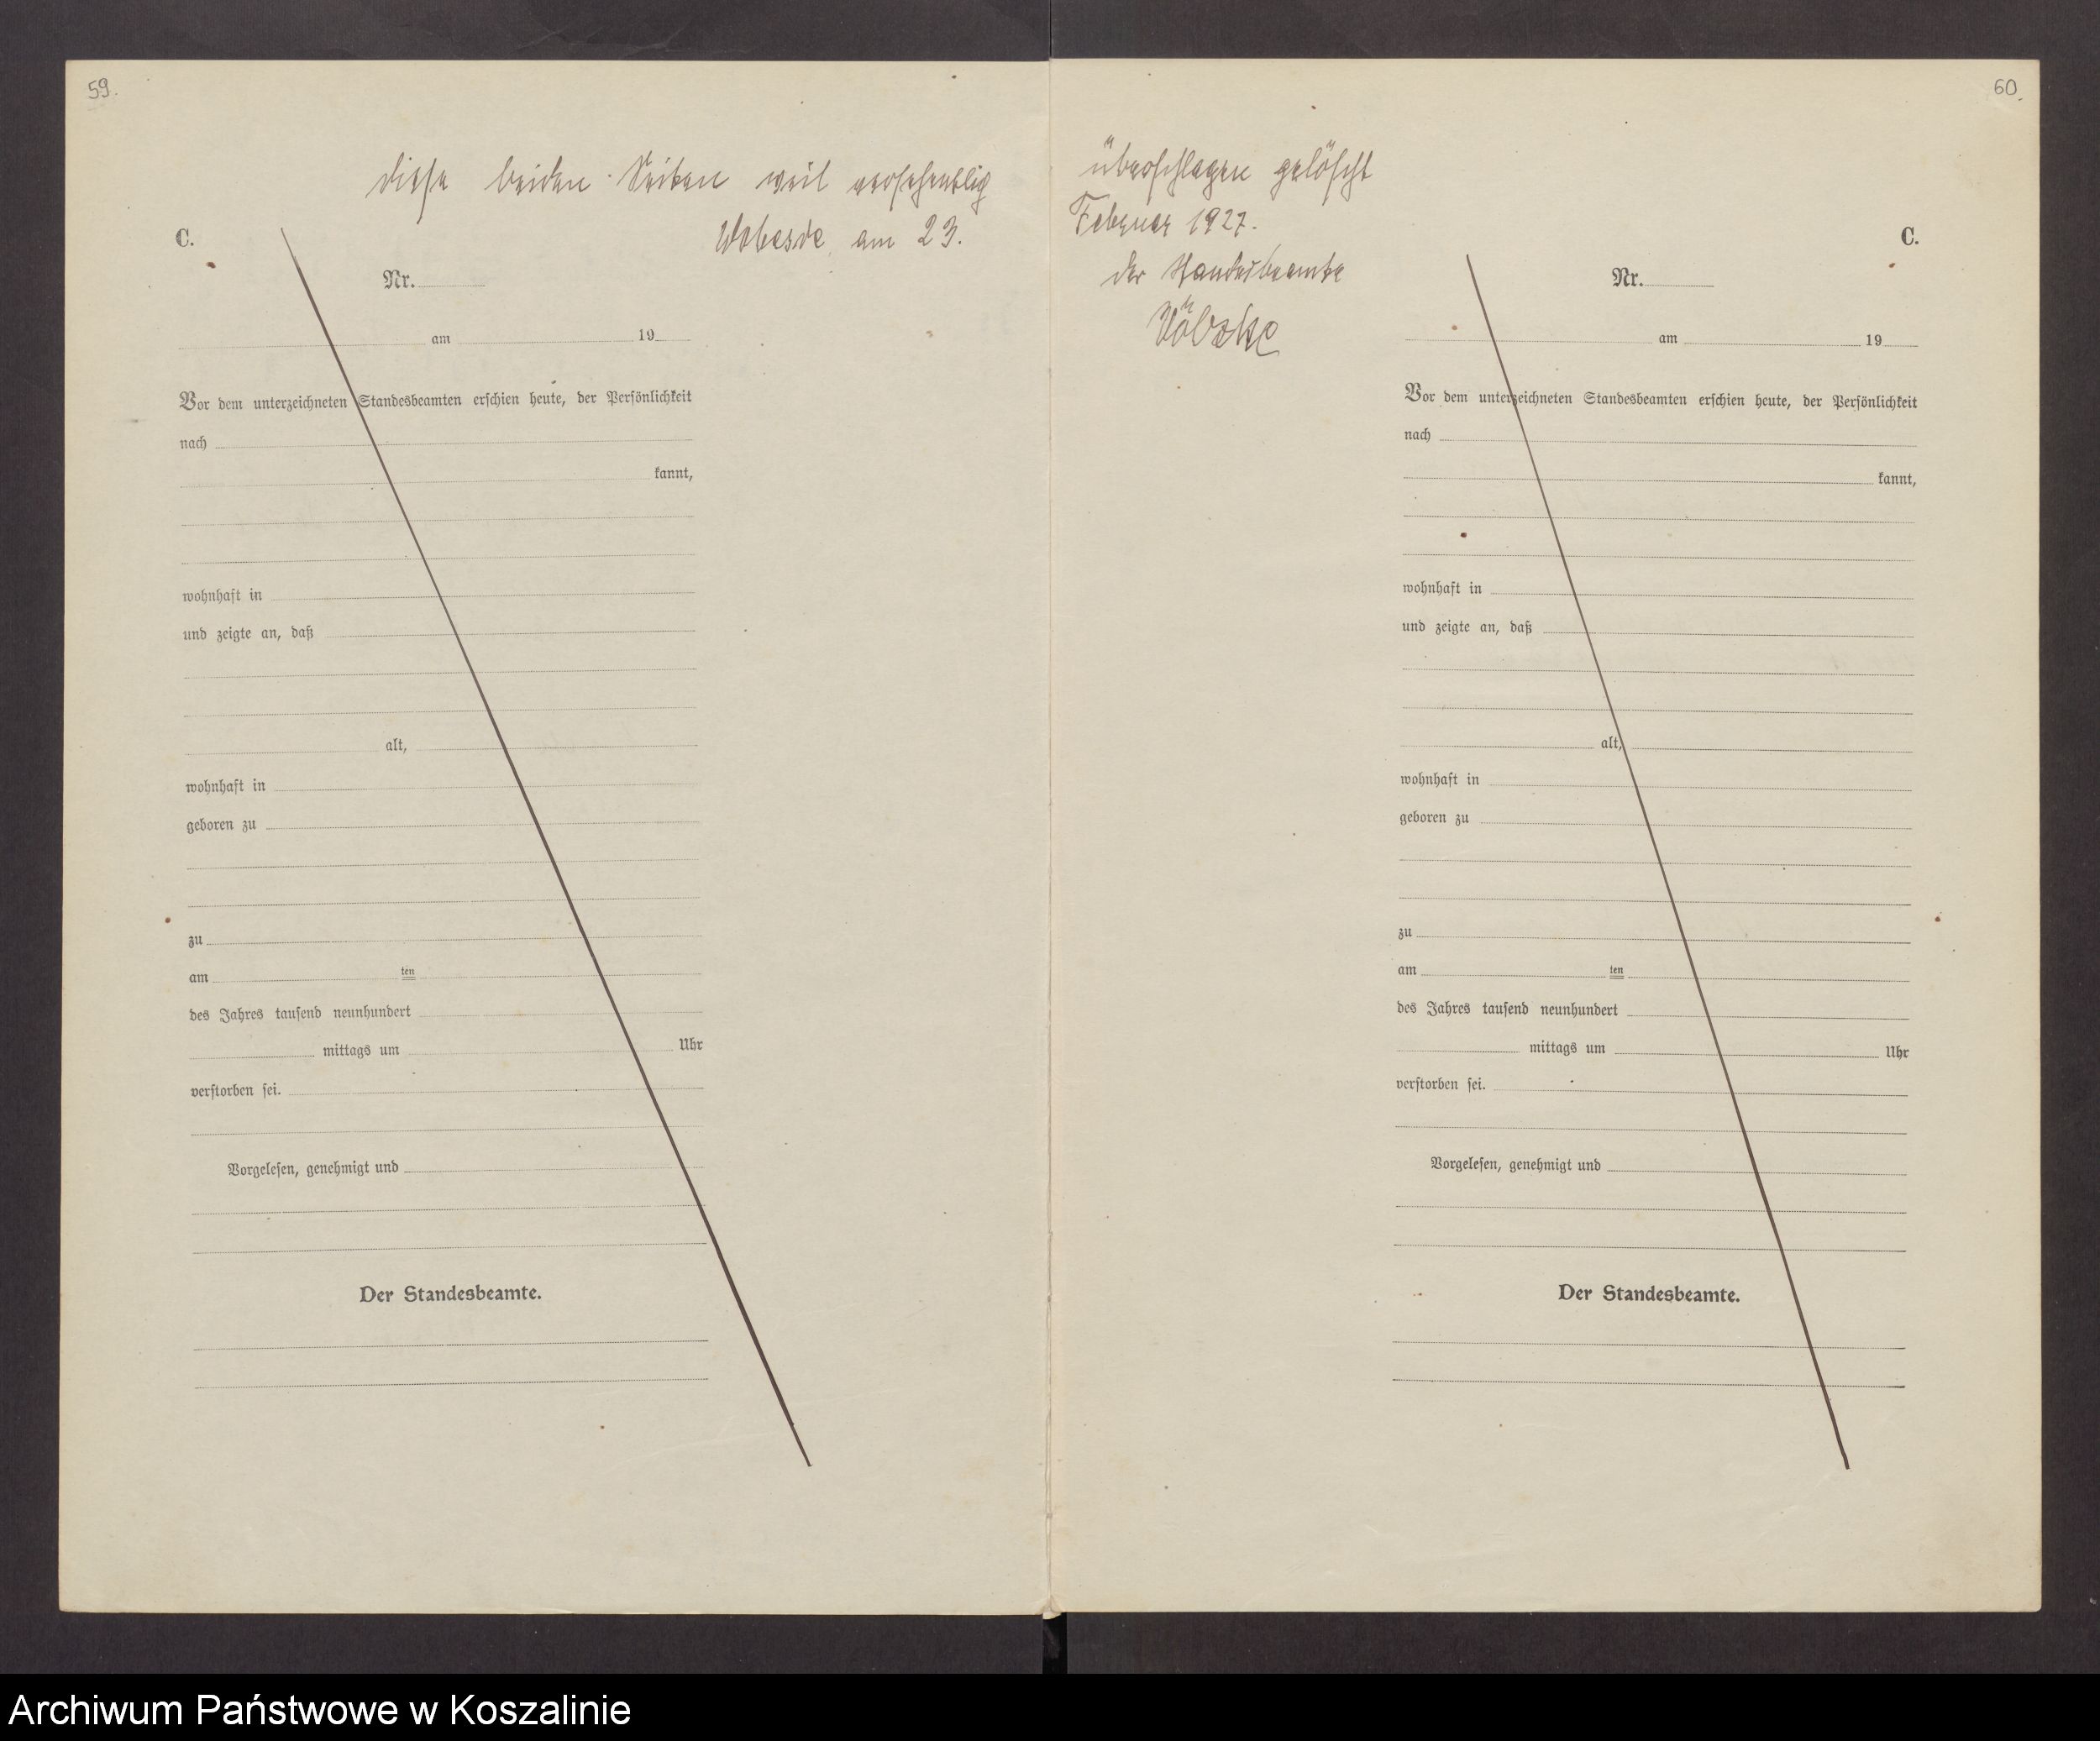 59.
diese beiden Seiten weil versehentlig
Wobesde, am 23.
C.
Nr.
am 19
Vor dem unterzeichneten Standesbeamten erschien heute, der Persönlichkeit
nach
kannt,
wohnhaft in
und zeigte an, daß
alt,
wohnhaft in
geboren zu
zu
am ten
des Jahres tausend neunhundert
mittags um Uhr
verstorben sei.
Vorgelesen, genehmigt und
Der Standesbeamte.
60.
überschlagen gelöscht
Februar 1927.
der Standesbeamte
C.
Nr.
am 19
Vor dem unterzeichneten Standesbeamten erschien heute, der Persönlichkeit
nach
kannt,
wohnhaft in
und zeigte an, daß
alt,
wohnhaft in
geboren zu
zu
am ten
des Jahres tausend neunhundert
mittags um Uhr
verstorben sei.
Vorgelesen, genehmigt und
Der Standesbeamte.
Archiwum Państwowe w Koszalinie